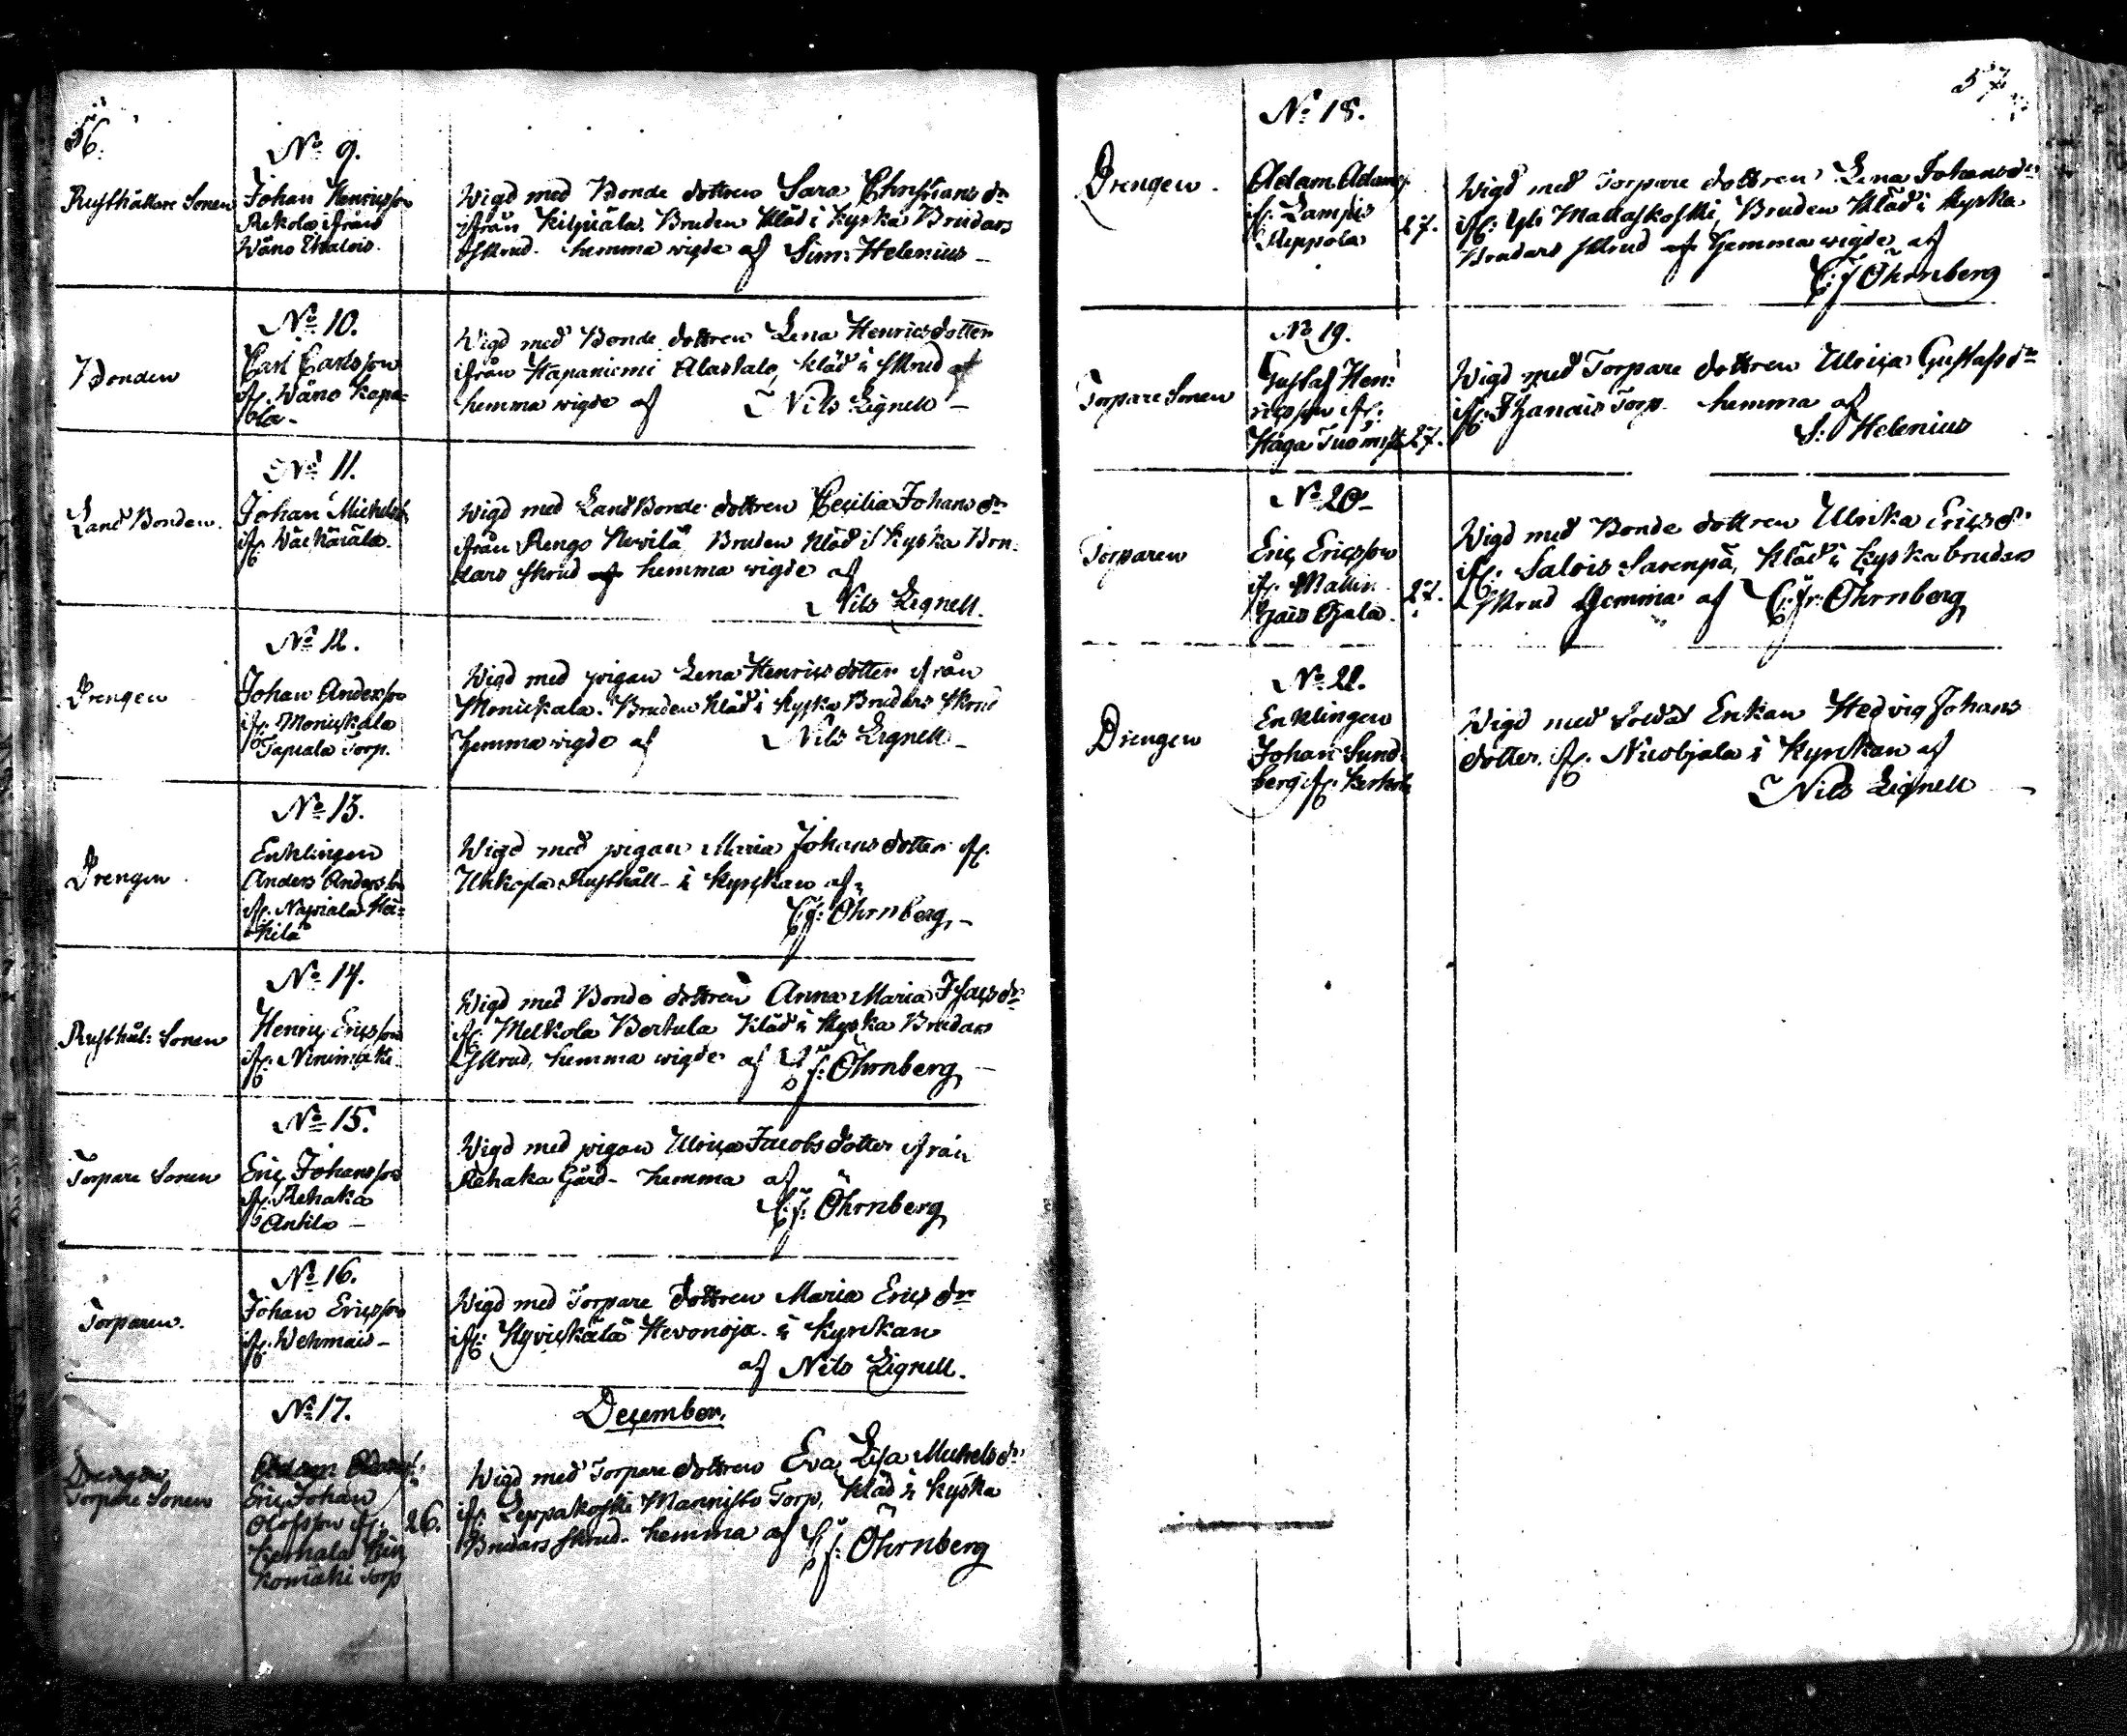 56.
No 9.
Rusthållare Sonen
Johan Henricsson
Rekola ifrån
Wåno Uhalois.
Wigd med Bonde dottren Sara Christians dr
ifrån Kilpiälä. Bruden kläd i kyrka Brudars
skrud. hemma wigde af Sim: Helenius –
No 10.
Bonden
Carl Carlsson
ifr. Wåno Kapo=
la –
Wigd med Bonde dottren Lena Henricsdotter
ifrån Hapaniemi Alastalo, kläd i skrud
hemma wigde af Nils Lignell –
No 11.
Land Bonden.
Johan Michels
ifr.
Wigd med Land Bonde dottren Cecilia Johans dr
ifrån Rengo Hevilä Bruden kläd i kyrka Bru:
dars skrud hemma wigde af
Nils Lignell.
No 12.
Drengen
Johan Andersson
ifr. Monickala
Tapiala Torp.
Wigd med pigan Lena Henricsdotter ifrån
Monickala. Bruden kläd i kyrka Brudars skrud
hemma wigde af Nils Lignell –
No 13.
Drengen
Enklingen
Anders Andersson
ifr. Napiala Hei=
kilä
Wigd med pigan Maria Johans dotter ifr.
Uhkoila Rusthåll – i kyrckan af
C:J: Öhrnberg, –
No 14.
Rusthål: Sonen
Henric Ericsson
ifr. Ninimäki
Wigd med Bonde dottren Anna Maria Isacs dr
ifr. Melkola Bertula kläd i kyrka Brudars
skrud, hemma wigde af C:J: Öhrnberg, –
No 15.
Torpare Sonen
Eric Johansson
ifr. Rehaka
Antila –
Wigd med pigan Ulrica Jacobs dotter ifrån
Rehaka Gård – hemma af
C:J: Öhrnberg,
No 16.
Torparen.
Johan Ericsson
ifr. Wehmais –
Wigd med Torpare dottren Maria Erics dr
ifr. Hyvickälä Hevonoja. i kyrckan
af Nils Lignell.
No 17.
December.
Drengen
Torpare Sonen
Eric Johan
Olofsson ifr.
26.
komäki Torp
Wigd med Torpare dottren Eva Lisa Michels dr
ifr. Leppäkoski Mannisto Torp, kläd i kyrka
Brudars skrud – hemma af C:J: Öhrnberg
57
No 18.
Drengen.
Adam Adams
ifr. Lampis
Reppola
27.
Wigd med Torpare dottren Lena Johans dr
ifr: Yli Mallaskoski, Bruden kläd i kyrka
Brudars skrud hemma wigde af
C:J Öhrnberg
No 19.
Torpare Sonen
Gustaf Hen:
ricsson ifr.
Haga
27.
Wigd med Torpare dottren Ulrica Gustafs dr
ifr. Torp. hemma af
S: Helenius
No 20 –
Torparen
Eric Ericsson
ifr. Mallin
Ojala.
27.
Wigd med Bonde dottren Ulrika Erics dr
ifr. Salois Sarenpä, kläd i kyrka brudars
skrud hemma af C:J: Öhrnberg
No 21.
Drengen
Enklingen
Johan Sund:
berg ifr.
Wigd med Soldat Enkan Hedvig Johans
dotter. ifr. Nicobjala i Kyrckan af
Nils Lignell –